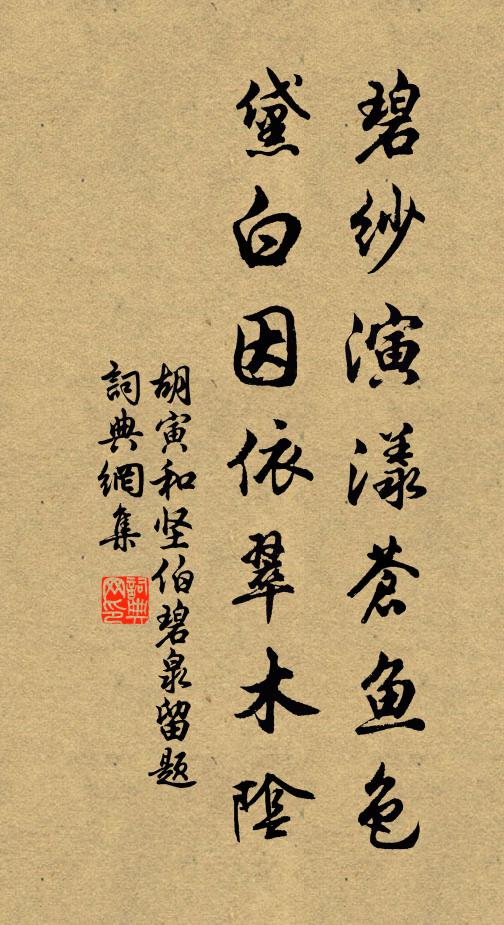 碧纱演漾苍鱼色
黛白因依翠木陰
胡寅和坚伯碧泉留题
詞典網集
詞典網印